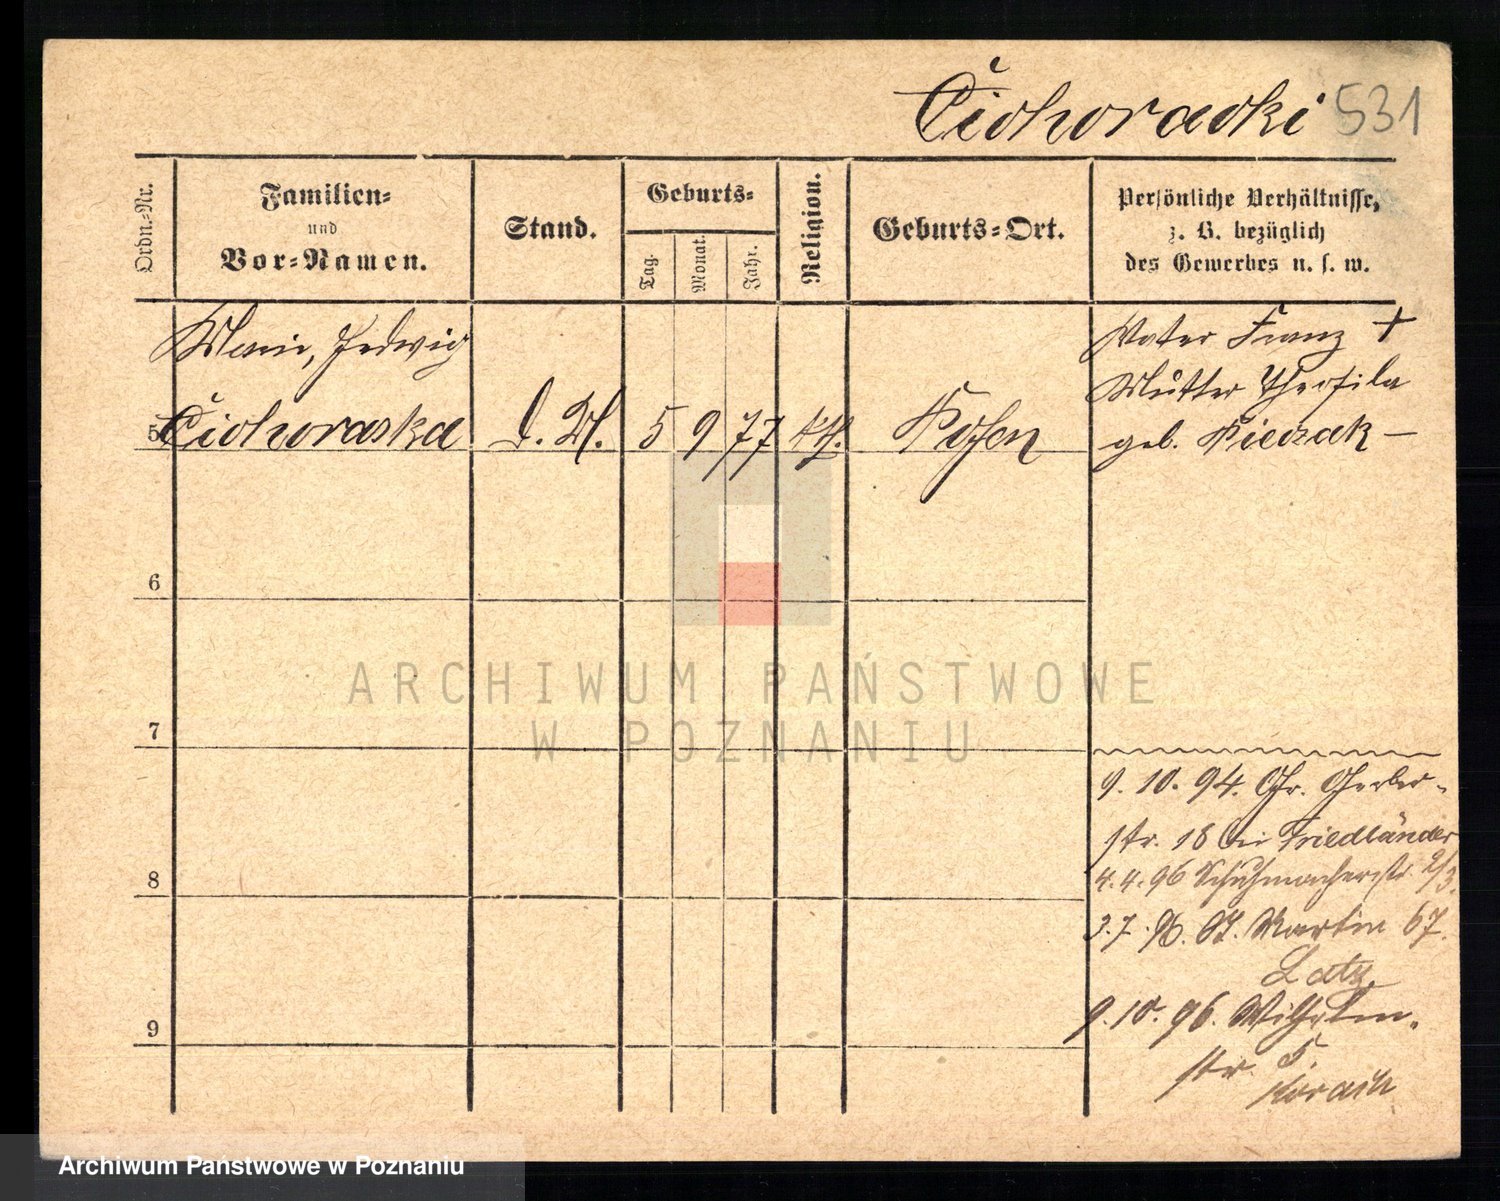 Cichoracki 531
Ordn.-Nr.
Familien-
und
Vor-Namen.
Stand.
Geburts-
Tag.
Monat.
Jahr.
Religion.
Geburts-Ort.
Persönliche Verhältnisse,
z. B. bezüglich
des Gewerbes u. s. w.
Marie, Hedwig
5 Cichoraska D. M. 5 9 77 kth. Posen
Vater Franz +
Mutter Theofila
geb. Pieczak —
6
7
8
9
9. 10. 94. Gr. Gerber-
str. 18 bei Friedländer
4. 4. 96 Schuhmacherstr. 2/3.
3. 7. 96. St. Martin 67.
Latz
9. 10. 96. Wilhelm-
str. 5.
ARCHIWUM PAŃSTWOWE
W POZNANIU
Archiwum Państwowe w Poznaniu